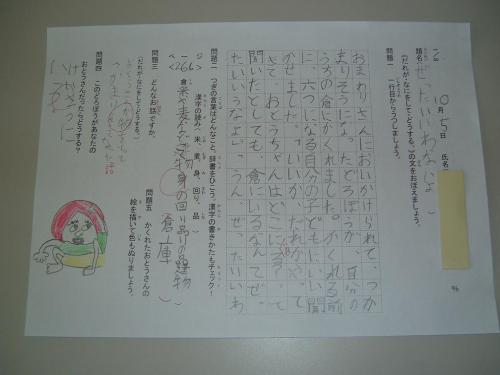 10月5日 氏名
題名 ぜったいいわないよ
(だれが・なにをして・どうする。)の文をおぼえましょう。
問題一 一行目からうつしましょう。
おまわりさんにおいかけられて、つか
まりそうになったどろぼうが、自分の
うちの倉にかくれました。かくれる前
に、六つになる自分の子どもにいい聞
かせました。「いいか、だれかやって
きて、おとうちゃんはどこにいるって
聞いたとしても、倉にいるなんてぜっ
たいいうなよ」「うん、ぜったいいわ
問題二 つぎの言葉はどんなことか、辞書をひこう。漢字の書きかたもチェック!
漢字の読み(米、麦、身、回り、品)
倉 米や麦など穀物身の回り品の品物
倉庫
問題三 どんなお話ですか。
(だれが・なにをして・どうする。)
問題四 このどろぼうがあなたの
おとうさんだったらどうする?
問題五 かくれたおとうさんの
絵を描いて色もぬりましょう。